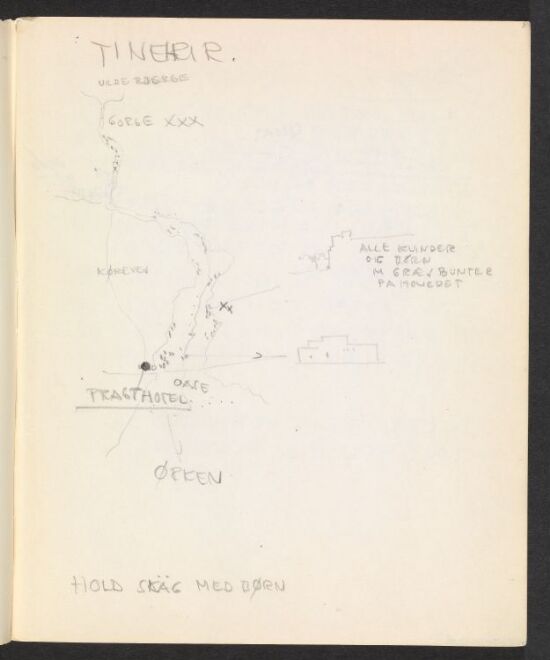 TINEHIR.
VILDE BJERGE
GORGE XXX
KØREVEJ
ALLE KVINDER
OG BØRN
M GRÆSBUNTER
PÅ HOVEDET
XX
OASE
PRAGTHOTEL.
ØRKEN
HOLD SKÄG MED BØRN